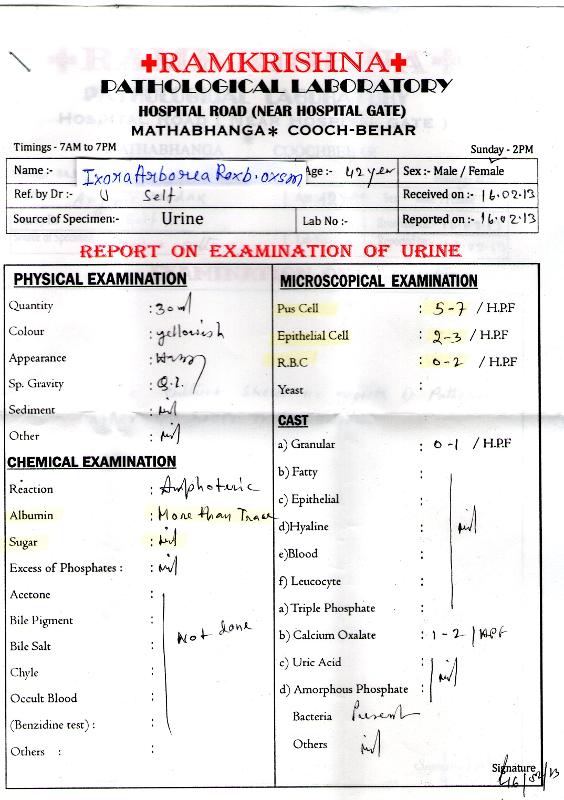 RAMKRISHNA
PATHOLOGICAL LABORATORY
HOSPITAL ROAD (NEAR HOSPITAL GATE)
MATHABHANGA* COOCH-BEHAR
Timings - 7AM to 7PM Sunday - 2PM
Name :- Ixora Arborea Roxb. oxsm Age :- 42 year Sex :- Male / Female
Ref. by Dr :- Self Received on :- 16.02.13
Source of Specimen:- Urine Lab No :- Reported on :- 16.02.13
REPORT ON EXAMINATION OF URINE
PHYSICAL EXAMINATION
Quantity : 30 ml
Colour : yellowish
Appearance : Hazy
Sp. Gravity : Q.I.
Sediment : nil
Other : nil
CHEMICAL EXAMINATION
Reaction : Amphoteric
Albumin : More than Trace
Sugar : nil
Excess of Phosphates : nil
Acetone :
Bile Pigment :
Bile Salt : Not done
Chyle :
Occult Blood :
(Benzidine test) :
Others : :
MICROSCOPICAL EXAMINATION
Pus Cell : 5-7 / H.P.F
Epithelial Cell : 2-3 / H.P.F
R.B.C : 0-2 / H.P.F
Yeast :
CAST
a) Granular : 0-1 / H.P.F
b) Fatty :
c) Epithelial :
d)Hyaline : nil
e)Blood :
f) Leucocyte :
a) Triple Phosphate :
b) Calcium Oxalate : 1-2 / HPF
c) Uric Acid : nil
d) Amorphous Phosphate :
Bacteria Present
Others nil
Signature
16/02/13